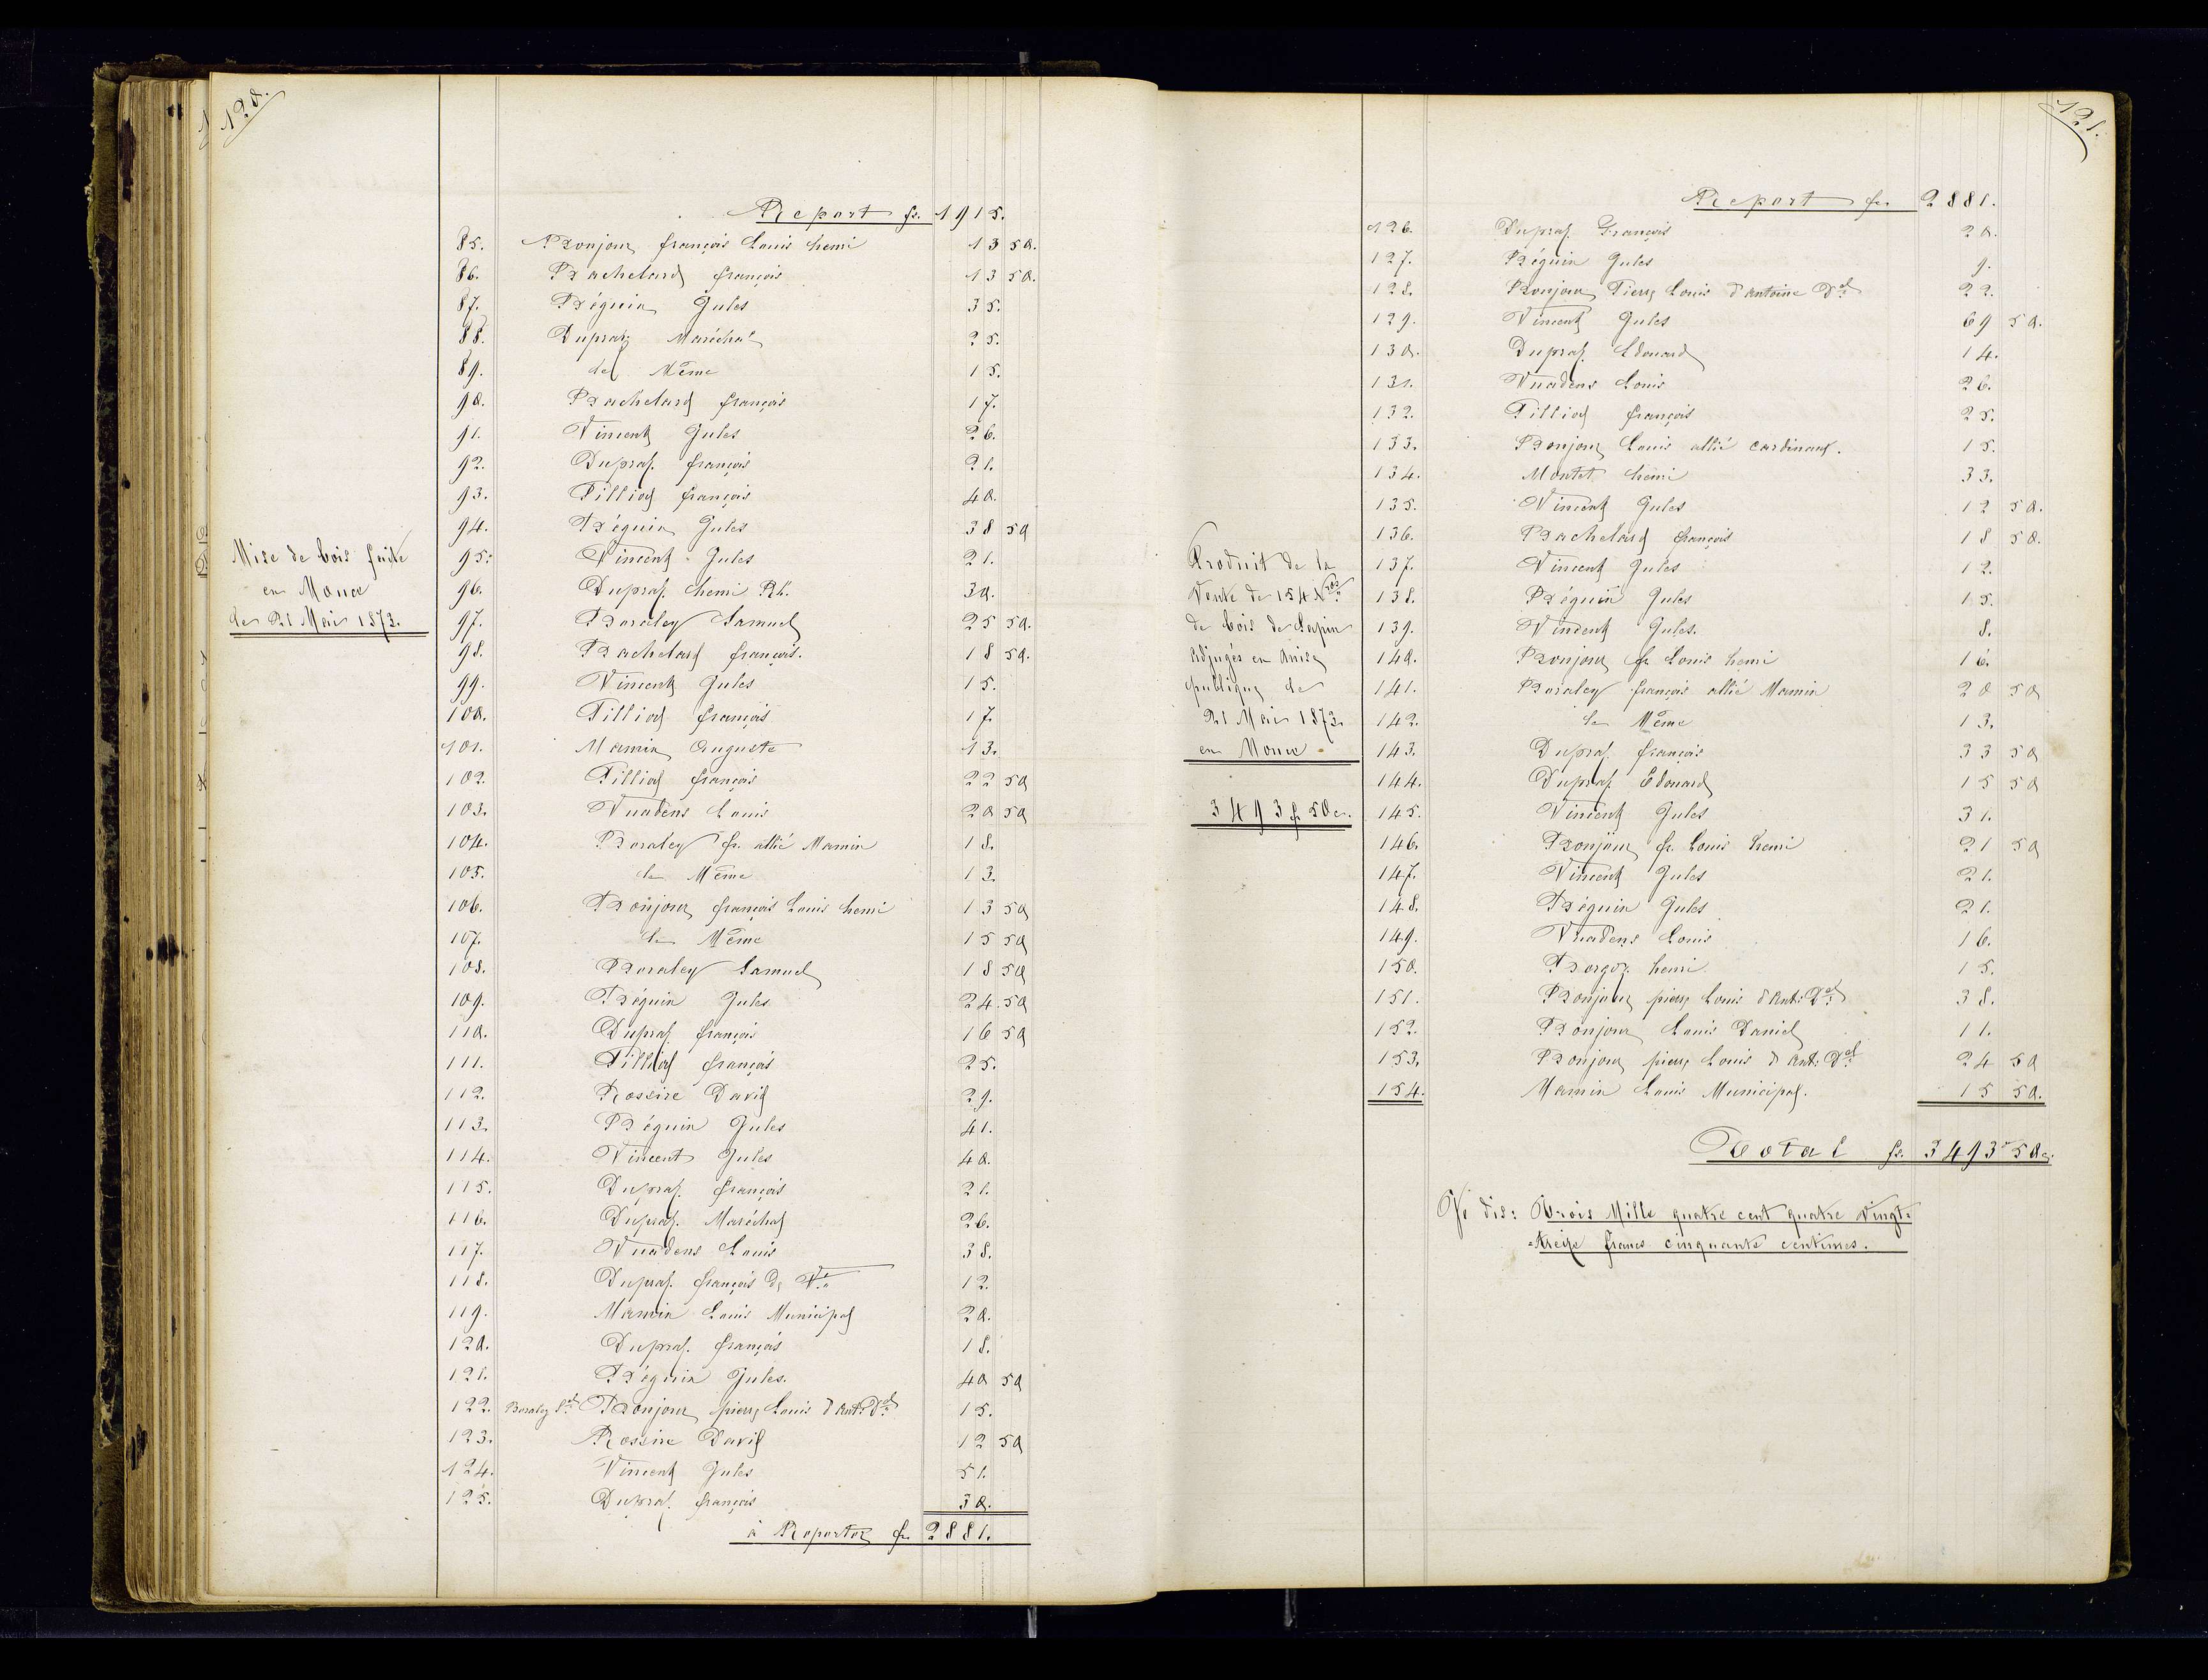 120.
Report fr. 1915.
85. Bonjour françois Louis henri 13 50.
86. Bachelard françois 13 50.
87. Béguin Jules 35.
88. Dupraz Maréchal 25.
89. le Même 15.
90. Bachelard françois 17.
91. Vincent Jules 26.
92. Dupraz françois 21.
93. Pilliod françois 40.
94. Béguin Jules 38 50
95. Vincent Jules 21.
96. Dupraz henri Rh. 30.
97. Boraley Samuel 25 50.
98. Bachelard françois. 18 50.
99. Vincent Jules 15.
100. Pilliod françois 17.
101. Mamin Auguste 13.
102. Pilliod françois 22 50
103. Vuadens Louis 20 50
104. Boraley fr. allié Mamin 18.
105. le Même 13.
106. Bonjour françois Louis henri 13 50
107. le Même 15 50
108. Boraley Samuel 18 50
109. Béguin Jules 24. 50
110. Dupraz françois 16 50
111. Pilliod françois 25.
112. Rossire David 29.
113. Béguin Jules 41.
114. Vincent Jules 40.
115. Dupraz françois 21.
116. Dupraz Maréchal 26.
117. Vuadens Louis 38.
118. Dupraz françois 12.
119. Mamin Louis Municipal 20.
120. Dupraz françois 18.
121. Béguin Jules. 40 50
122. Boraley Sel Bonjour pierre Louis d'Ant: Del 15.
123. Rossire David 12 50
124. Vincent Jules 51.
125. Dupraz françois 30.
à Reporter fr. 2881.
Mise de bois faite
en Moure
le 21 Mai 1873.
121.
Report fr. 2881.
126. Dupraz François 20.
127. Béguin Jules 9.
128. Bonjour Pierre Louis d'Antoine Del 22.
129. Vincent Jules 69 50.
130. Dupraz Edouard 14.
131. Vuadens Louis 26.
132. Pilliod françois 25.
133. Bonjour Louis allié Cardinaux. 15.
134. Montet henri 33.
135. Vincent Jules 12 50.
136. Bachelard françois 18 50.
137. Vincent Jules 12.
138. Béguin Jules 15.
139. Vincent Jules. 8.
140. Bonjour fr Louis henri 16.
141. Boraley françois allié Mamin 20 50
142. le Même 13.
143. Dupraz françois 33 50
144. Dupraz Edouard 15 50
145. Vincent Jules 31.
146. Bonjour fr. Louis henri 21 50
147. Vincent Jules 21.
148. Béguin Jules 21.
149. Vuadens Louis 16.
150. Borgoz henri 15.
151. Bonjour pierre Louis d'Ant: Del 38.
152. Bonjour Louis Daniel 11.
153. Bonjour pierre Louis d'Ant: Del 24 50
154. Mamin Louis Municipal. 15 50.
Total fr. 3493 50c.
Je dis: Trois Mille quatre cent quatre Vingt-
-treize francs cinquante centimes.
Produit de la
Vente de 154 Nos
de bois de Sapin
Adjugés en mise
publique le
21 Mai 1873.
en Moure.
3493 f 50c.